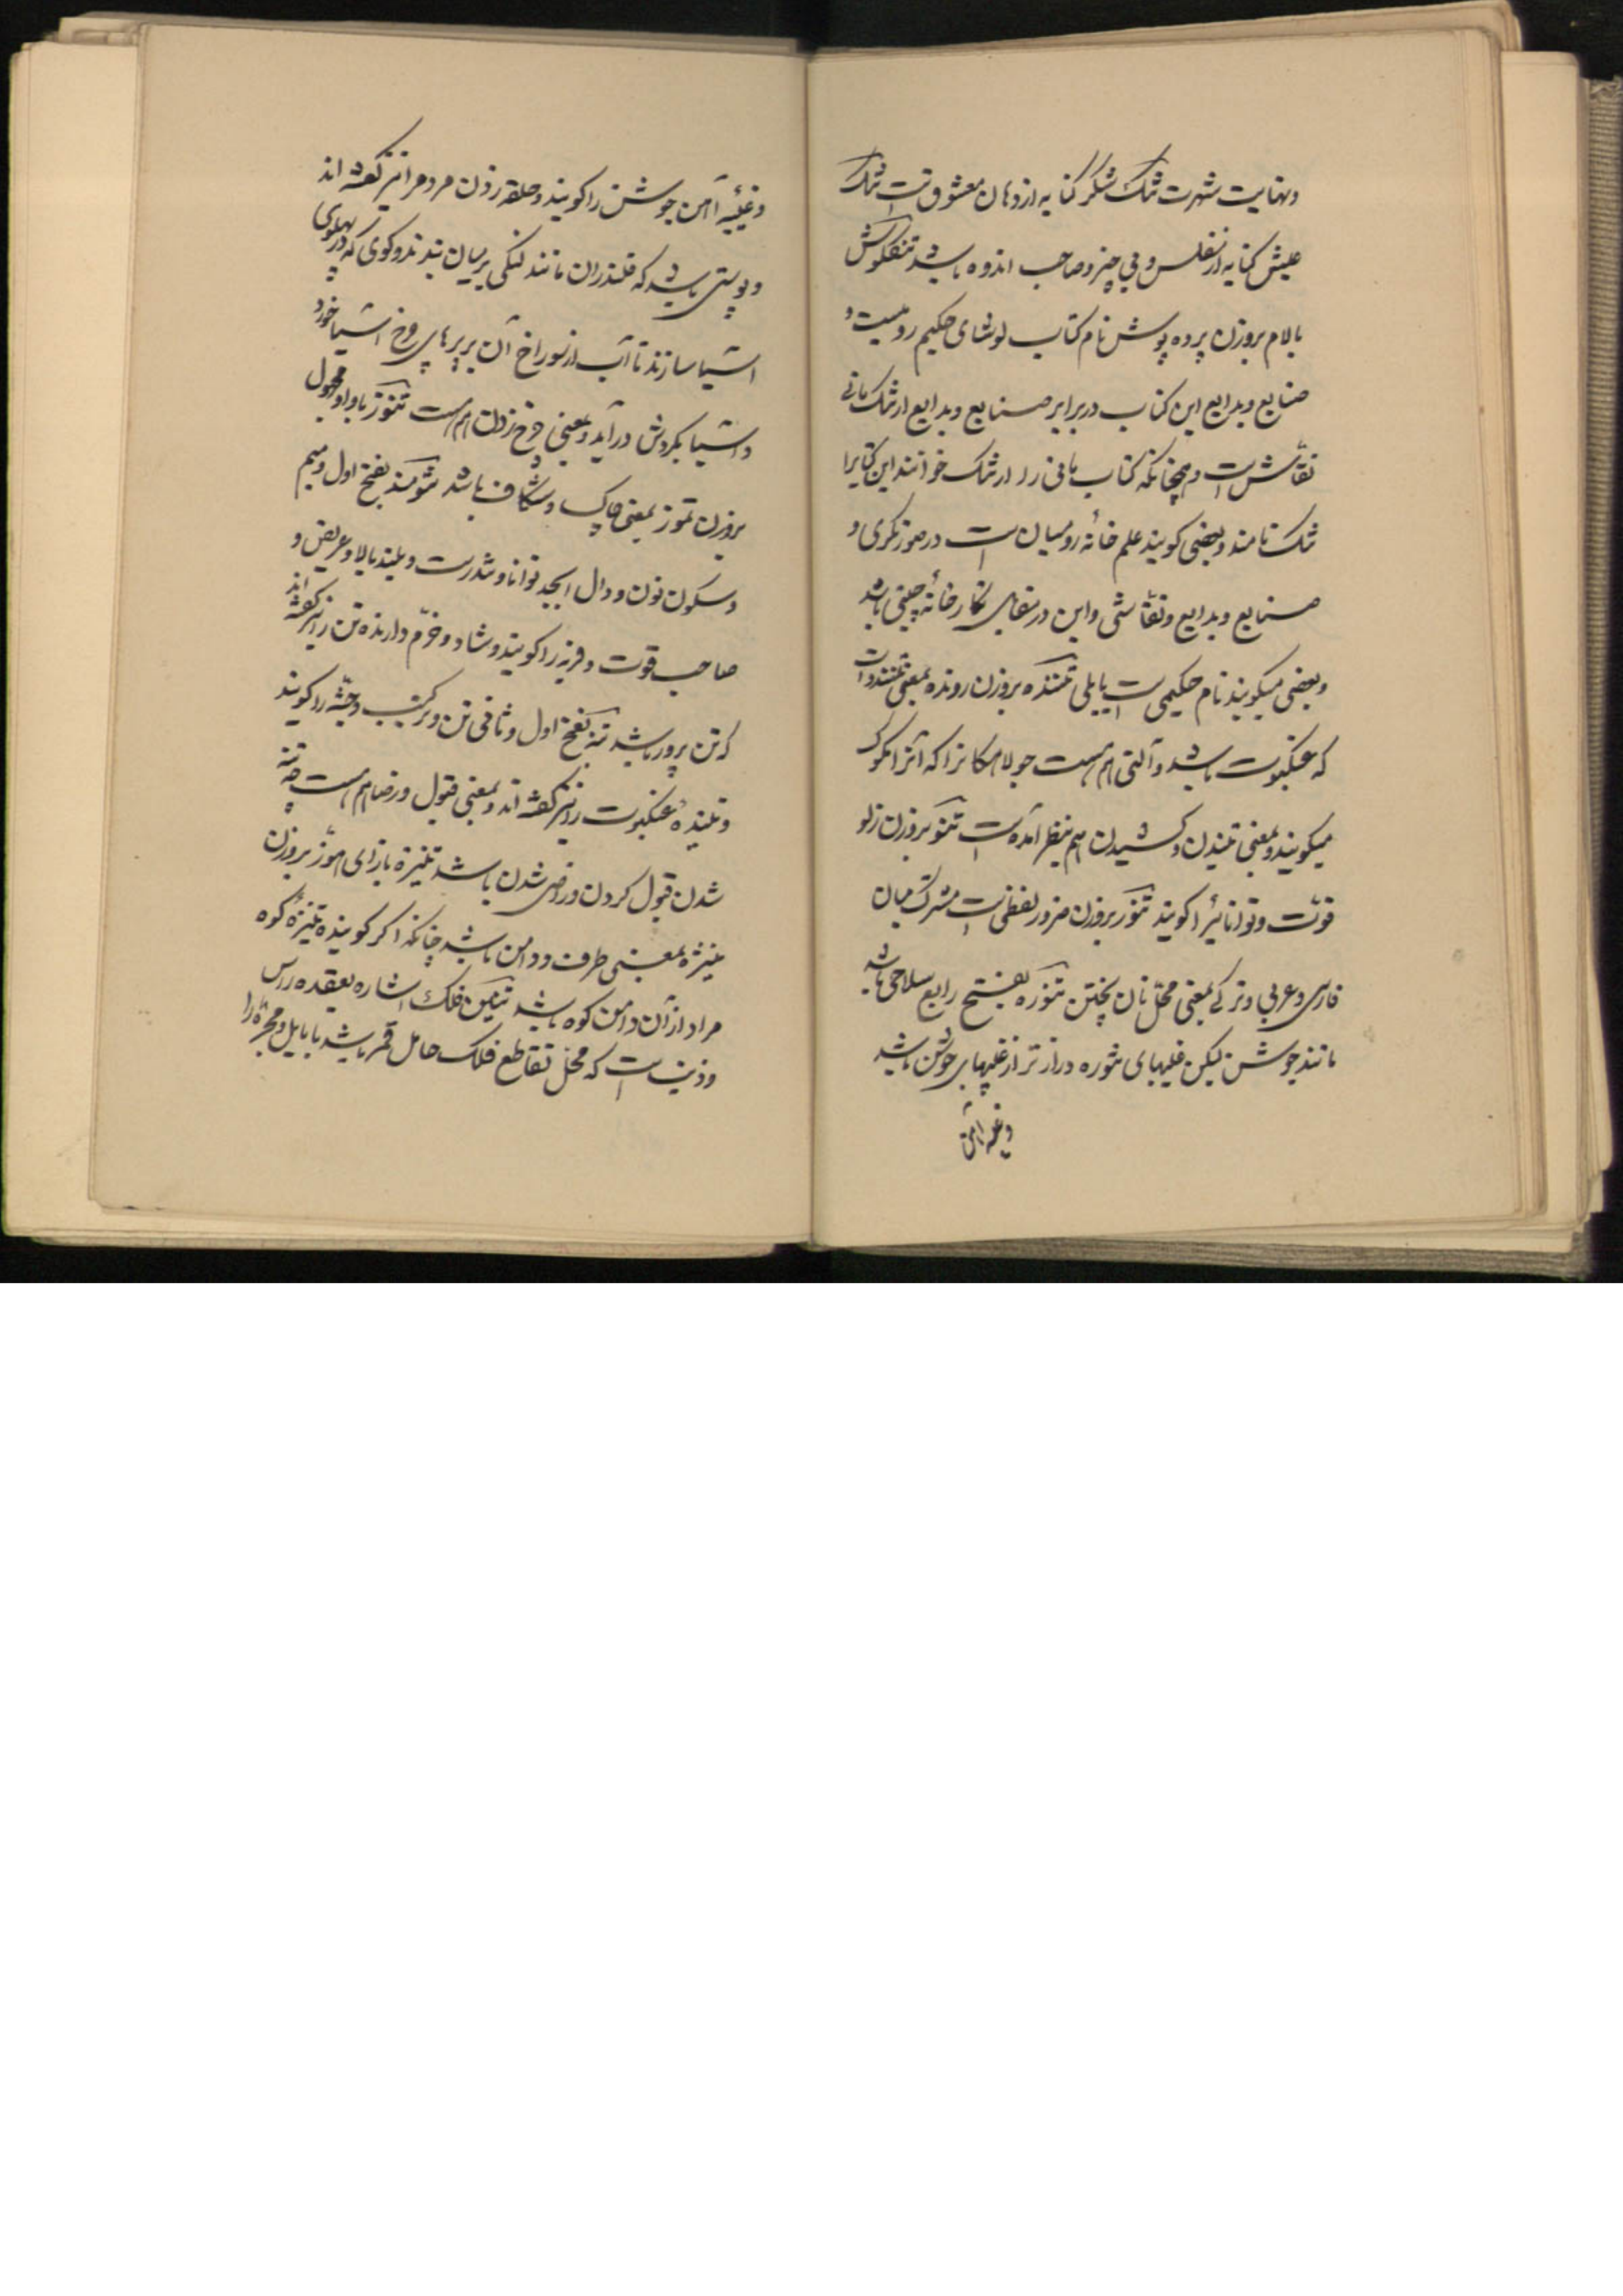 ونهایت شهرت تنک شکر کنایه از دهان معشوقست تنک
عیش کنایه از مفلس و بی چیز و صاحب اندوه باشد تنکلوش
بالام بروزن پرده پوش نام کتاب لوشای حکیم رومیست و
صنایع و بدایع این کتاب در برابر صنایع و بدایع ارتنک مانی
نقاش است و همچنانکه کتاب مانی را ارتنک خوانند این کتابرا
تنک نامند و بعضی کویند علم خانه رومیان است در صورتکری و
صنایع و بدایع و نقاشی و این در مقابل نکارخانه چینی باشد
و بعضی میکویند نام حکیمی است بابلی تنندە بروزن روندە بمعنی تنندو است
که عنکبوت باشد و آلتی هم هست جولاهکانرا که آنرا مکوک
میکویند و بمعنی تنیدن و کشیدن هم بنظر آمده است تنو بروزن زلو
قوت و توانائیرا کویند تنور بروزن ضرور لفظی است مشترک میان
فارسی و عربی و ترکی بمعنی محل نان پختن تنوره بفتح رابع سلاحی باشد
مانند جوشن لیکن غلیبهای تنوره درازتر از غیبهای جوشن باشد
و غیبه آهن
و غیبه آهن جوشن را کویند و حلقه زدن مردمرا نیز کفته اند
و پوستی باشد که قلندران مانند لنکی بر میان بندند و کوی که در پهلوی
آسیا سازند تا آب از سوراخ آن بر پرهای چرخ آسیا خورد
و آسیا بکردش در آید و بمعنی چرخ زدن هم هست تنوز با واو مجهول
بروزن تموز بمعنی چاک و شکاف باشد تنومند بفتح اول و میم
و سکون نون و دال ابجد توانا و تندرست و بلند بالا و عریض و
صاحب قوت و فربه را کویند و شاد و خرم دارنده تن را نیز کفته اند
که تن پرور باشد تنه بفتح اول و ثانی تن و ترکیب و جثه را کویند
و تنیده عنکبوت را نیز کفته اند و بمعنی قبول و رضا هم هست چه تنه
شدن قبول کردن و راضی شدن باشد تنیزه بازای هوّز بروزن
منیژه بمعنی طرف و دامن باشد چنانکه اکر کویند تنیزه کوه
مراد از آن دامن کوه باشد تنین فلک اشاره بعقده راس
و ذنب است که محل تقاطع فلک حامل قمر باشد با مایل و مجره را